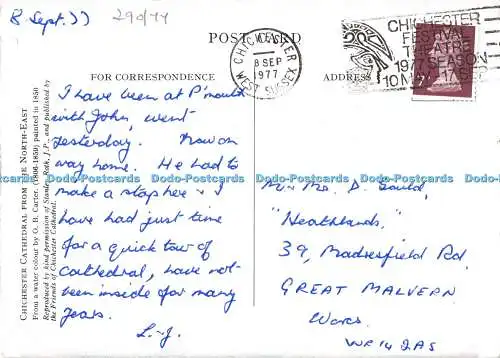 8 Sept. 77
290/77
POST CARD
CHICHESTER
8 SEP
1977
WEST SUSSEX
CHICHESTER
FESTIVAL
THEATRE
1977 SEASON
10 MAY-17 SEP
FOR CORRESPONDENCE
ADDRESS
I have been at P'mouth
with John, went
yesterday. Now on
way home. He had to
make a stop here & I
have had just time
for a quick tour of
Cathedral, have not
been inside for many
years.
L-J.
Mr & Mrs. D. Gould,
"Heathlands,"
39, Madresfield Rd.
GREAT MALVERN
Worcs.
WR14 2AS
CHICHESTER CATHEDRAL FROM THE NORTH-EAST
From a water colour by O. B. Carter (1806-1859) painted in 1850
Reproduced by kind permission of Stanley Roth, J.P., and published by
the Friends of Chichester Cathedral.
Dodo-Postcards Dodo-Postcards Dodo-Postcards Dodo-Postcards Dodo-Postcards Dodo-Postcards